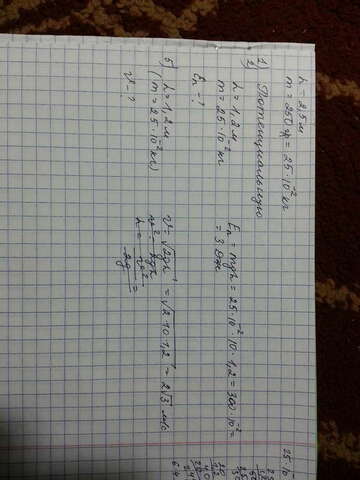 h = 2,5 м
m = 250 г = 25·10⁻² кг
1) Потенциальную
h = 1,2 м
m = 25·10⁻² кг
Eп - ?
Eп = mgh = 25·10⁻²·10·1,2 = 300·10⁻² =
= 3 Дж
5) h = 1,2 м
(m = 25·10⁻² кг)
v - ?
v = √2gh = √2·10·1,2 = 2√3 м/с
v² = 2gh
h = v²/2g =
25·10